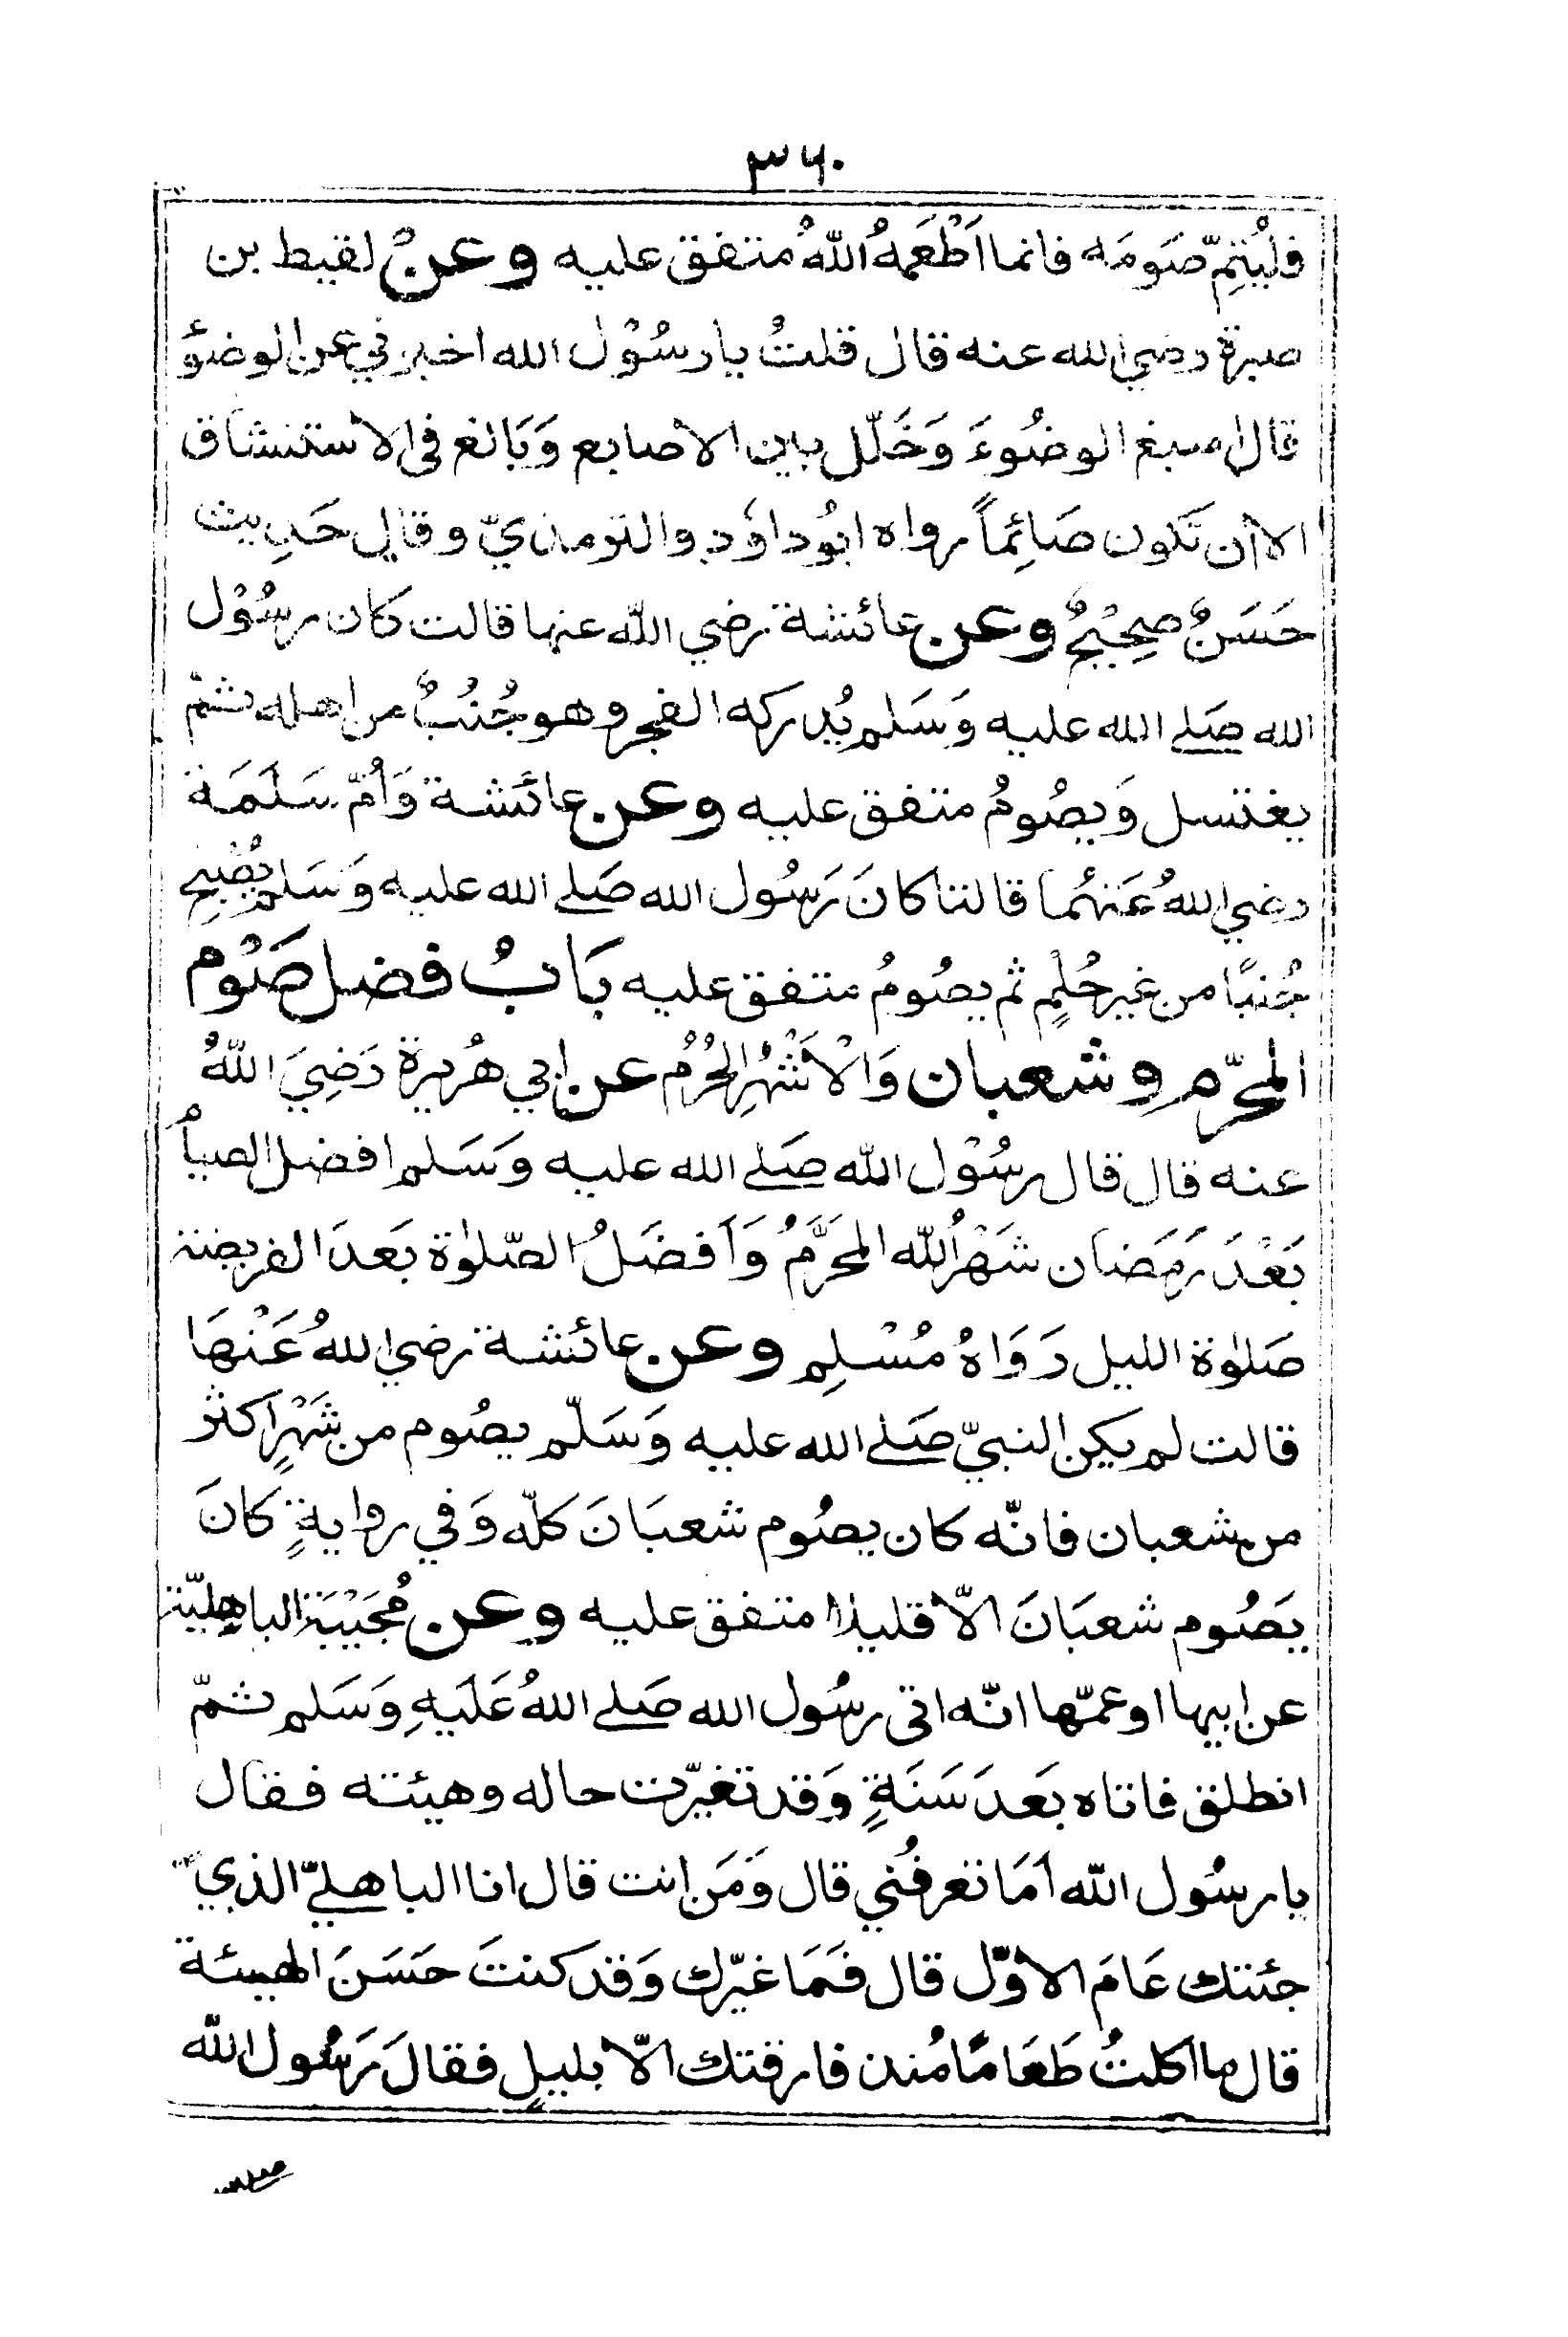 ٣٦٠
فليُتِمّ صَومَه فانما اَطْعَمَهُ اللّٰهُ متفق عليه وعنْ لقيط بن
صبرة رضي الله عنه قال قلتُ يا رسُوْل الله اخبرني عن الوضؤ
قال اسبغ الوضُوءَ وَخَلّل بين الاصابع وَبَالغ فى الاستنشاق
الا ان تَكون صَائِماً رواه ابُوداوٗد والترمذيّ وقال حَدِيث
حَسَنٌ صحِيْحٌ وعن عائشة رضي اللّٰه عنها قالت كان رسُوْل
الله صَلے الله عليه وَسَلم يُدركه الفجر وهو جُنُبٌ من اهله ثمّ
يغتسل وَيصُومُ متفق عليه وعن عائشة وَاُمّ سَلَمَة
رضي اللهُ عَنهُما قالتا كانَ رَسُول الله صَلے الله عليه وَسَلم يُصْبِح
جُنبًا من غير حُلْمٍ ثم يصُومُ متفق عليه بَابُ فضل صَوْم
المحرّم وشعبان وَالْاَشْهُرِ الْحُرُمُ عن ابي هُريرة رَضِيَ اللّٰهُ
عنه قال قال رسُوْل اللّٰه صَلے الله عليه وَسَلم افضل الصيامُ
بَعْدَ رَمَضان شَهْرُ اللّٰه المحَرَّمُ وَاَفضَلُ الصّلوٰة بَعدَ الفريضة
صَلوٰة الليل رَوَاهُ مُسْلِم وعن عائشة رضي اللهُ عَنْهَا
قالت لم يكن النبيّ صَلے الله عليه وَسَلّم يصُوم من شَهْرٍ اكثر
من شعبان فانّه كان يصُوم شعبَانَ كلّه وَفي روايةٍ كانَ
يَصُوم شعبَانَ الاّ قليلا متفق عليه وعن مُجَيْبَة الباهِليّة
عن ابيها او عمّها انّه اتى رسُول الله صَلے اللهُ عَلَيهِ وَسَلم ثمّ
انطلق فاتاه بَعدَ سَنَةٍ وَقد تغيّرت حاله وهيئته فقال
يا رسُول اللّٰه اَمَا تعرفُني قال وَمَن انت قال انا الباهليّ الذي
جئتك عَامَ الاوّل قال فَمَا غيّرك وَقد كنتَ حَسَنَ الهيئة
قال ما اكلتُ طَعَامًا مُنذ فارقتك الاّ بليلٍ فقالَ رَسُول اللّٰه